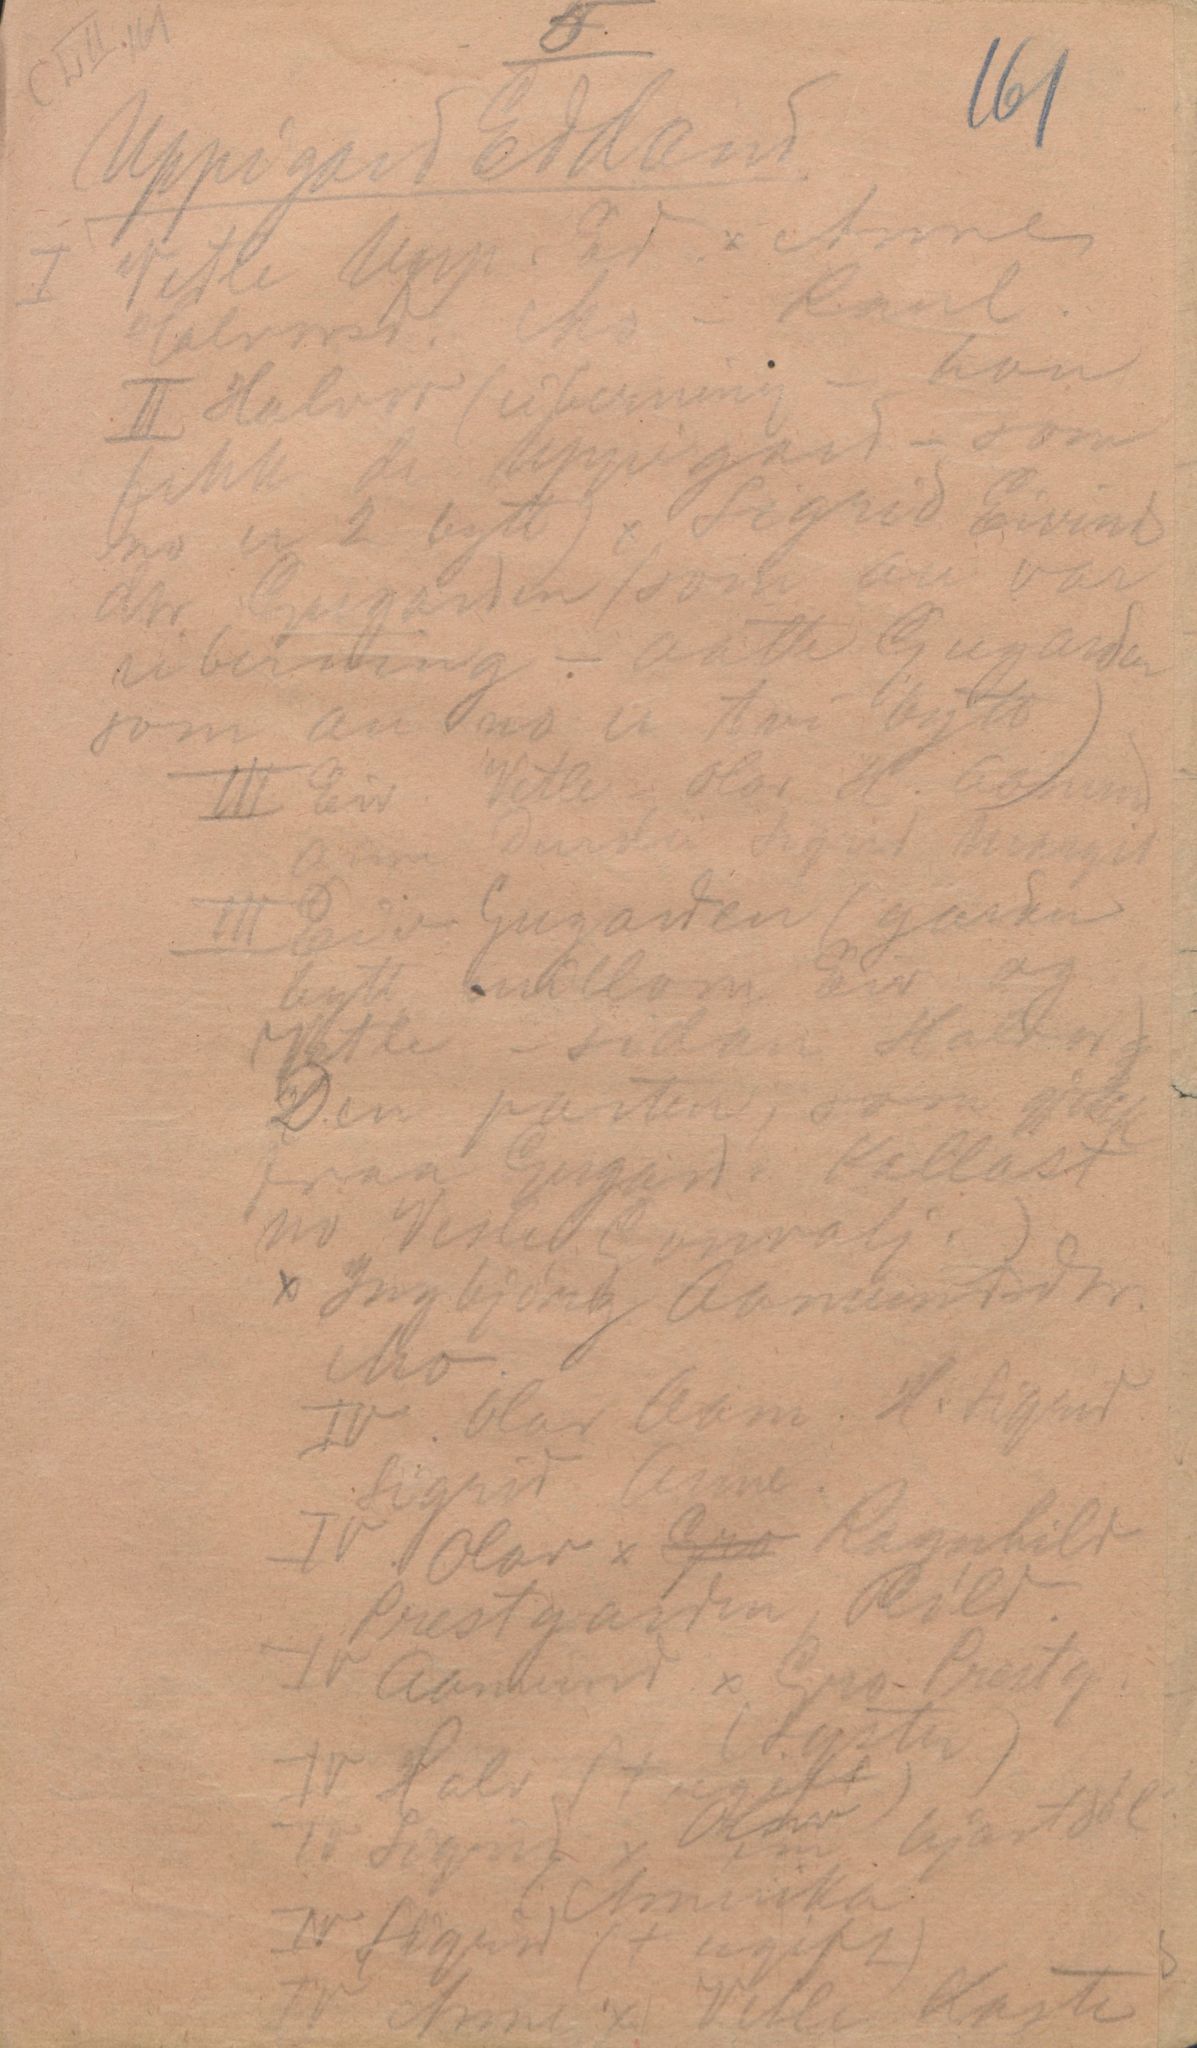 5.
161
Uppigard Edland
I Vetle Upp. Ed. x Anne
Halvorsd. Mo - Raul.
II Halvor (iberning - han
fekk de Uppigard - som
no er 2 bytt) x Sigrid Eivinds
dtr Gugarden (som au var
iberning - aatte Gugarden
som au no er tvi bytt)
III Eiv. Vetle Olav H. Aamund
Anne Sigrid Margit
III Eiv Gugarden (garden
bytt millom Eiv og
Vetle - sidan Halvor)
Den parten, som gjekk
fraa Gugard. kallast
no Vesle )
x Ingbjörg Aamundsdtr.
Mo.
IV Olav Aam. H. Sigrid
Sigrid Anne.
IV Olav x Gro Ragnhild
Prestgarden, Röld.
IV Aamund x Gro Prestg.
(Syster)
IV Halv (+ ugift)
IV Sigrid x Olav Hjartdöl
Amerika
IV Sigrid (+ ugift)
IV Anne x Vetle